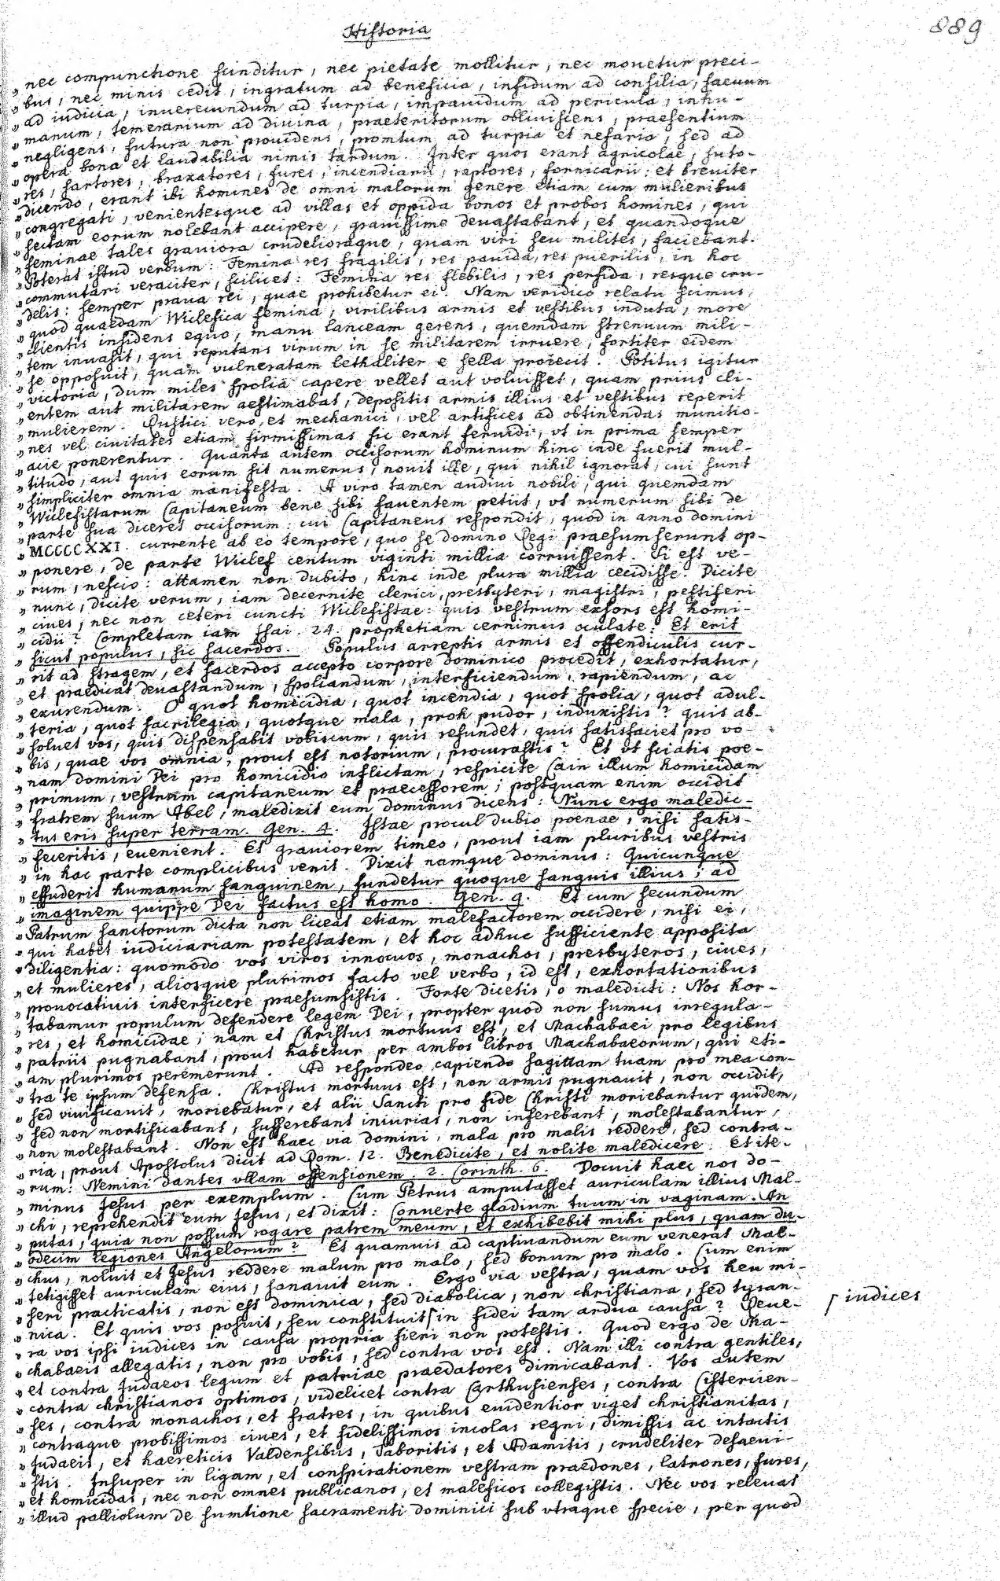 Historia
889
„ nec compunctione scinditur, nec pietate mollitur, nec monetur preci-
„ bus, nec minis cedit, ingratum ad beneficia, infidum ad consilia, saeuum
„ ad iudicia, inuerecundum ad turpia, impauidum ad pericula, inhu-
„ manum, temerarium ad diuina, praeteritorum obliuiscens, praesentium
„ negligens, futura non prouidens, promtum ad turpia et nefario, sed ad
„ opera bona et laudabilia nimis tardum. Inter quos erant agricolae, suto-
„ res, sartores, braxatores, fures, incendiarii, raptores, fornicarii: et breuiter
„ dicendo, erant ibi homines de omni malorum genere etiam cum mulieribus
„ congregati, venientesque ad villas et oppida bonos et probos homines, qui
„ sectam eorum nolebant accipere, grauissime deuastabant, et quandoque
„ feminae tales grauiora crudelioraque, quam viri seu milites, faciebant.
„ Poterat istud verbum: Femina res fragilis, res pauida, res puerilis, in hoc
„ commutari veraciter, scilicet: Femina res flebilis, res perfida, resque cru-
„ delis: semper praua rei, quae prohibetur ei. Nam veridico relatu scimus,
„ quod quaedam Wiclefica femina, virilibus armis et vestibus induta, more
„ clientis insidens equo, manu lanceam gerens, quemdam strenuum mili-
„ tem inuasit, qui reputans virum in se militarem irruere, fortiter eidem
„ se opposuit, quam vulneratam lethalliter e sella proiecit. Potitus igitur
„ victoria, dum miles spolia capere vellet aut voluisset, quam prius cli-
„ entem aut militarem aestimabat, depositis armis illius et vestibus reperit
„ mulierem. Rustici vero, et mechanici, vel artifices ad obtinendas munitio-
„ nes vel ciuitates etiam firmissimas sic erant feruidi, vt in prima semper
„ acie ponerentur. Quanta autem occisorum hominum hinc inde fuerit mul-
„ titudo, aut quis eorum sit numerus, nouit ille, qui nihil ignorat, cui sunt
„ simpliciter omnia manifesta. A viro tamen audiui nobili, qui quemdam
„ Wiclefistarum Capitaneum bene sibi fauentem petiit, vt numerum sibi de
„ parte sua diceret occisorum: cui Capitaneus respondit, quod in anno domini
„ MCCCCXXI. currente ab eo tempore, quo se domino Regi praesumserunt op-
„ ponere, de parte Wiclef centum viginti millia corruissent. Si est ve-
„ rum, nescio: attamen non dubito, hinc inde plura millia cecidisse. Dicite
„ nunc, dicite verum, iam decernite clerici, presbyteri, magistri, pestiferi
„ ciues, nec non ceteri cuncti Wiclefistae: quis vestrum exsors est homi-
„ cidii? Completam iam Isai. 24. prophetiam cernimus oculate: Et erit
„ sicut populus, sic sacerdos. Populus arreptis armis et offendiculis cur-
„ rit ad stragem, et sacerdos accepto corpore dominico procedit, exhortatur,
„ et praedicat deuastandum, spoliandum, interficiendum, rapiendum, ac
„ exurendum. O quot homicidia, quot incendia, quot spolia, quot adul-
„ teria, quot sacrilegia, quotque mala, proh pudor, induxistis? quis ab-
„ soluet vos, quis dispensabit vobiscum, quis refundet, quis satisfaciet pro vo-
„ bis, quae vos omnia, prout est notorium, procurastis? Et vt sciatis poe-
„ nam domini Dei pro homicidio inflictam, respicite Cain illum homicidam
„ primum, vestrum capitaneum et praecessorem; postquam enim occidit
„ fratrem suum Abel, maledixit eum dominus dicens: Nunc ergo maledic-
„ tus eris super terram. Gen. 4. Istae procul dubio poenae, nisi satis-
„ feceritis, euenient. Et grauiorem timeo, prout iam pluribus vestris
„ in hac parte complicibus venit. Dixit namque dominus: Quicunque
„ effuderit humanum sanguinem, fundetur quoque sanguis illius; ad
„ imaginem quippe Dei factus est homo. Gen. 9. Et cum secundum
„ Patrum sanctorum dicta non liceat etiam malefactorem occidere, nisi ei,
„ qui habet iudiciariam potestatem, et hoc adhuc sufficiente apposita
„ diligentia: quomodo vos viros innocuos, monachos, presbyteros, ciues,
„ et mulieres, aliosque plurimos facto vel verbo, id est, exhortationibus
„ prouocatiuis interficere praesumsistis. Forte dicetis, o maledicti: Nos hor-
„ tabamur populum defendere legem Dei, propter quod non sumus irregula-
„ res, et homicidae; nam et Christus mortuus est, et Machabaei pro legibus
„ patriis pugnabant, prout habetur per ambos libros Machabaeorum, qui eti-
„ am plurimos peremerunt. Ad respondeo capiendo sagittam tuam pro mea con-
„ tra te ipsum defensa. Christus mortuus est, non armis pugnauit, non occidit,
„ sed viuificauit, moriebatur, et alii Sancti pro fide Christi moriebantur quidem,
„ sed non mortificabant, sufferebant iniurias, non inferebant, molestabantur,
„ non molestabant. Non est haec via domini, mala pro malis reddere, sed contra-
„ ria, prout Apostolus dicit ad Rom. 12. Benedicite, et nolite maledicere: Et ite-
„ rum: Nemini dantes vllam offensionem. 2. Corinth. 6. Docuit haec nos do-
„ minus Jesus per exemplum. Cum Petrus amputasset auriculam illius Mal-
„ chi, reprehendit eum Jesus, et dixit: Conuerte gladium tuum in vaginam. An
„ putas, quia non possum rogare patrem meum, et exhibebit mihi plus, quam du-
„ odecim legiones Angelorum? Et quamuis ad captiuandum eum venerat Mal-
„ chus, noluit et Jesus reddere malum pro malo, sed bonum pro malo. Cum enim
„ tetigisset auriculam eius, sanauit eum. Ergo via vestra, quam vos heu mi-
„ seri practicatis, non est dominica, sed diabolica, non christiana, sed tyran-
„ nica. Et quis vos posuit, seu constituit⌠ in fidei tam ardua causa? Reue-
⌠ iudices
„ ra vos ipsi iudices in causa propria fieri non potestis. Quod ergo de Ma-
„ chabaeis allegatis, non pro vobis, sed contra vos est. Nam illi contra gentiles,
„ et contra Judaeos legum et patriae praedatores dimicabant. Vos autem
„ contra christianos optimos, videlicet contra Carthusienses, contra Cistercien-
„ ses, contra monachos, et fratres, in quibus euidentior viget christianitas,
„ contraque probissimos ciues, et fidelissimos incolas regni, dimissis ac intactis
„ Judaeis, et haereticis Valdensibus, Taboritis, et Adamitis, crudeliter desaeui-
„ stis. Insuper in ligam, et conspirationem vestram praedones, latrones, fures,
„ et homicidas, nec non omnes publicanos, et maleficos collegistis. Nec vos releuat
„ illud palliolum de sumtione sacramenti dominici sub vtraque specie, per quod